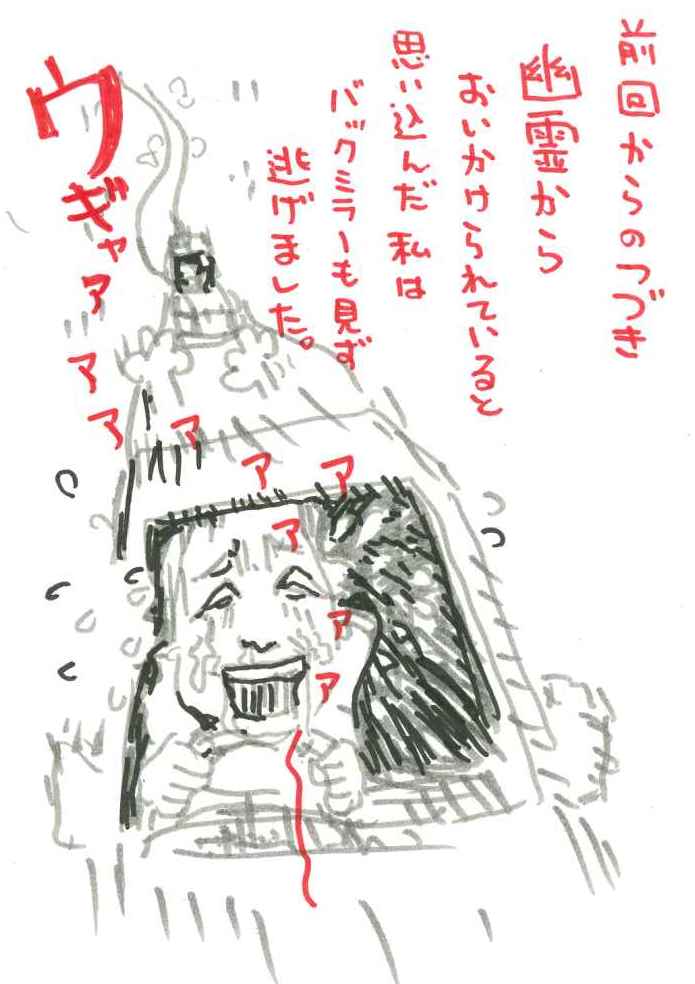 前回からのつづき
幽霊から
おいかけられていると
思い込んだ私は
バックミラーも見ず
逃げました。
ウギャアアアアアアアアア